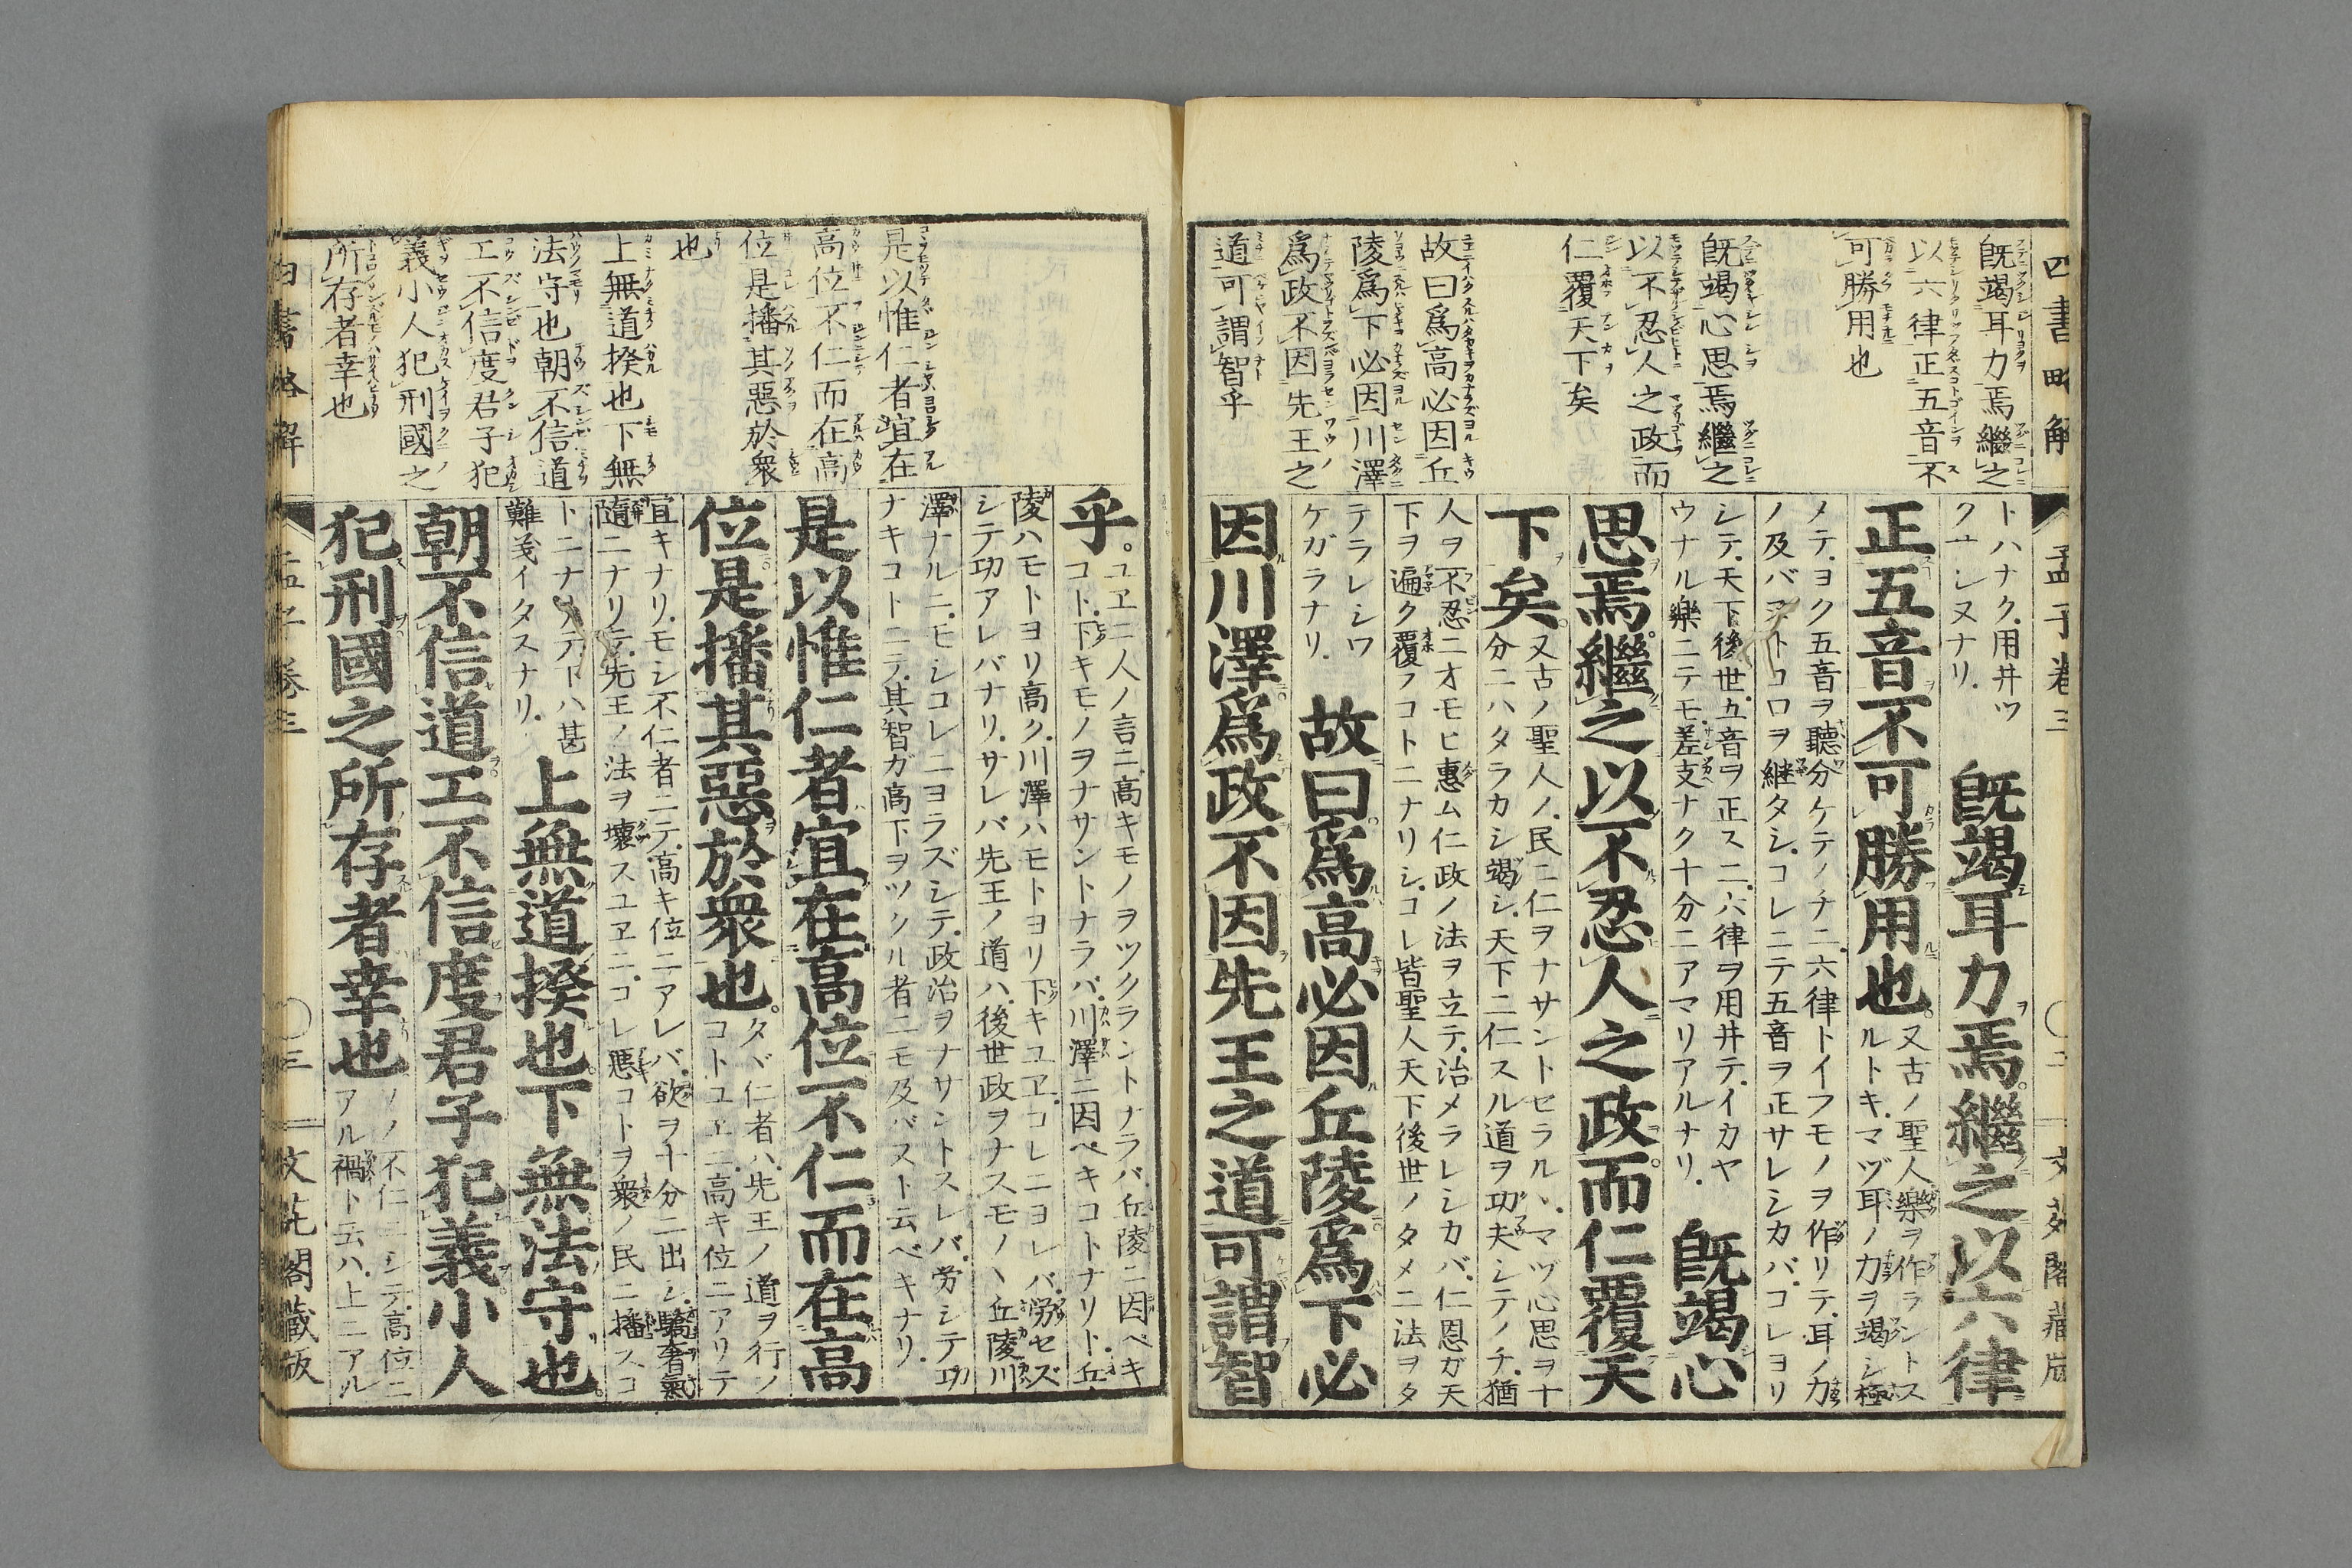 四書略解
孟子卷三
〇二
文苑閣藏版
既竭耳力焉繼之
以六律正五音不
可勝用也
既竭心思焉繼之
以不忍人之政而
仁覆天下矣
故曰爲高必因丘
陵爲下必因川澤
爲政不因先王之
道可謂智乎
トハナク.用井ツ
クㇾヌナリ.
既竭耳力焉繼之以六律
正五音不可勝用也。
又古ノ聖人樂ヲ作ラントス
ルトキ.マヅ耳ノ力ヲ竭シ極
メテ.ヨク五音ヲ聽分ケテノチニ.六律トイフモノヲ作リテ.耳ノ力
ノ及バヌトコロヲ継タシ.コレニテ五音ヲ正サレシカバ.コレヨリ
シテ.天下後世.五音ヲ正スニ.六律ヲ用井テ.イカヤ
ウナル樂ニテモ.差支ナク十分ニアマリアルナリ.
既竭心
思焉繼之以不忍人之政而仁覆天
下矣。
又古ノ聖人ノ.民ニ仁ヲナサントセラルヽ.マヅ心思ヲ十
分ニハタラカシ竭シ.天下ニ仁スル道ヲ功夫シテノチ.猶
人ヲ不忍ニオモヒ惠ム仁政ノ法ヲ立テ.治メラレシカバ.仁恩ガ天
下ヲ遍ク覆フコトニナリシ.コレ皆聖人天下後世ノタメニ法ヲタ
テラレシワ
ケガラナリ.
故曰爲高必因丘陵爲下必
因川澤爲政不因先王之道可謂智
是以惟仁者宜在
高位不仁而在高
位是播其惡於衆
也
上無道揆也下無
法守也朝不信道
工不信度君子犯
義小人犯刑國之
所存者幸也
乎。
ユヱニ人ノ言ニ.高キモノヲツクラントナラバ.丘陵ニ因ベキ
コト.下キモノヲナサントナラバ.川澤ニ因ベキコトナリト.丘
陵ハモトヨリ高ク.川澤ハモトヨリ下キユヱ.コレニヨレバ.勞セズ
シテ功アレバナリ.サレバ先王ノ道ハ.後世政ヲナスモノヽ丘陵川
澤ナルニ.モシコレニヨラズシテ.政治ヲナサントスレバ.労シテ功
ナキコトニテ.其智ガ高下ヲツクル者ニモ及バスト云ベキナリ.
是以惟仁者宜在高位不仁而在高
位是播其惡於衆也。
タヾ仁者ハ.先王ノ道ヲ行ノ
コトユヱニ.高キ位ニアリテ
宜キナリ.モシ不仁者ニテ.高キ位ニアレバ.欲ヲ十分ニ出シ.驕奢氣
隨ニナリテ.先王ノ法ヲ壞スユヱニ.コレ惡コトヲ衆ノ民ニ播スコ
トニナリテ.下ハ甚
難義イタスナリ.
上無道揆也下無法守也。
朝不信道工不信度君子犯義小人
犯刑國之所存者幸也
ノノ不仁ニシテ.高位ニ
アル禍ト云ハ.上ニアル
四書略解
孟子卷三
〇三
文苑閣藏版